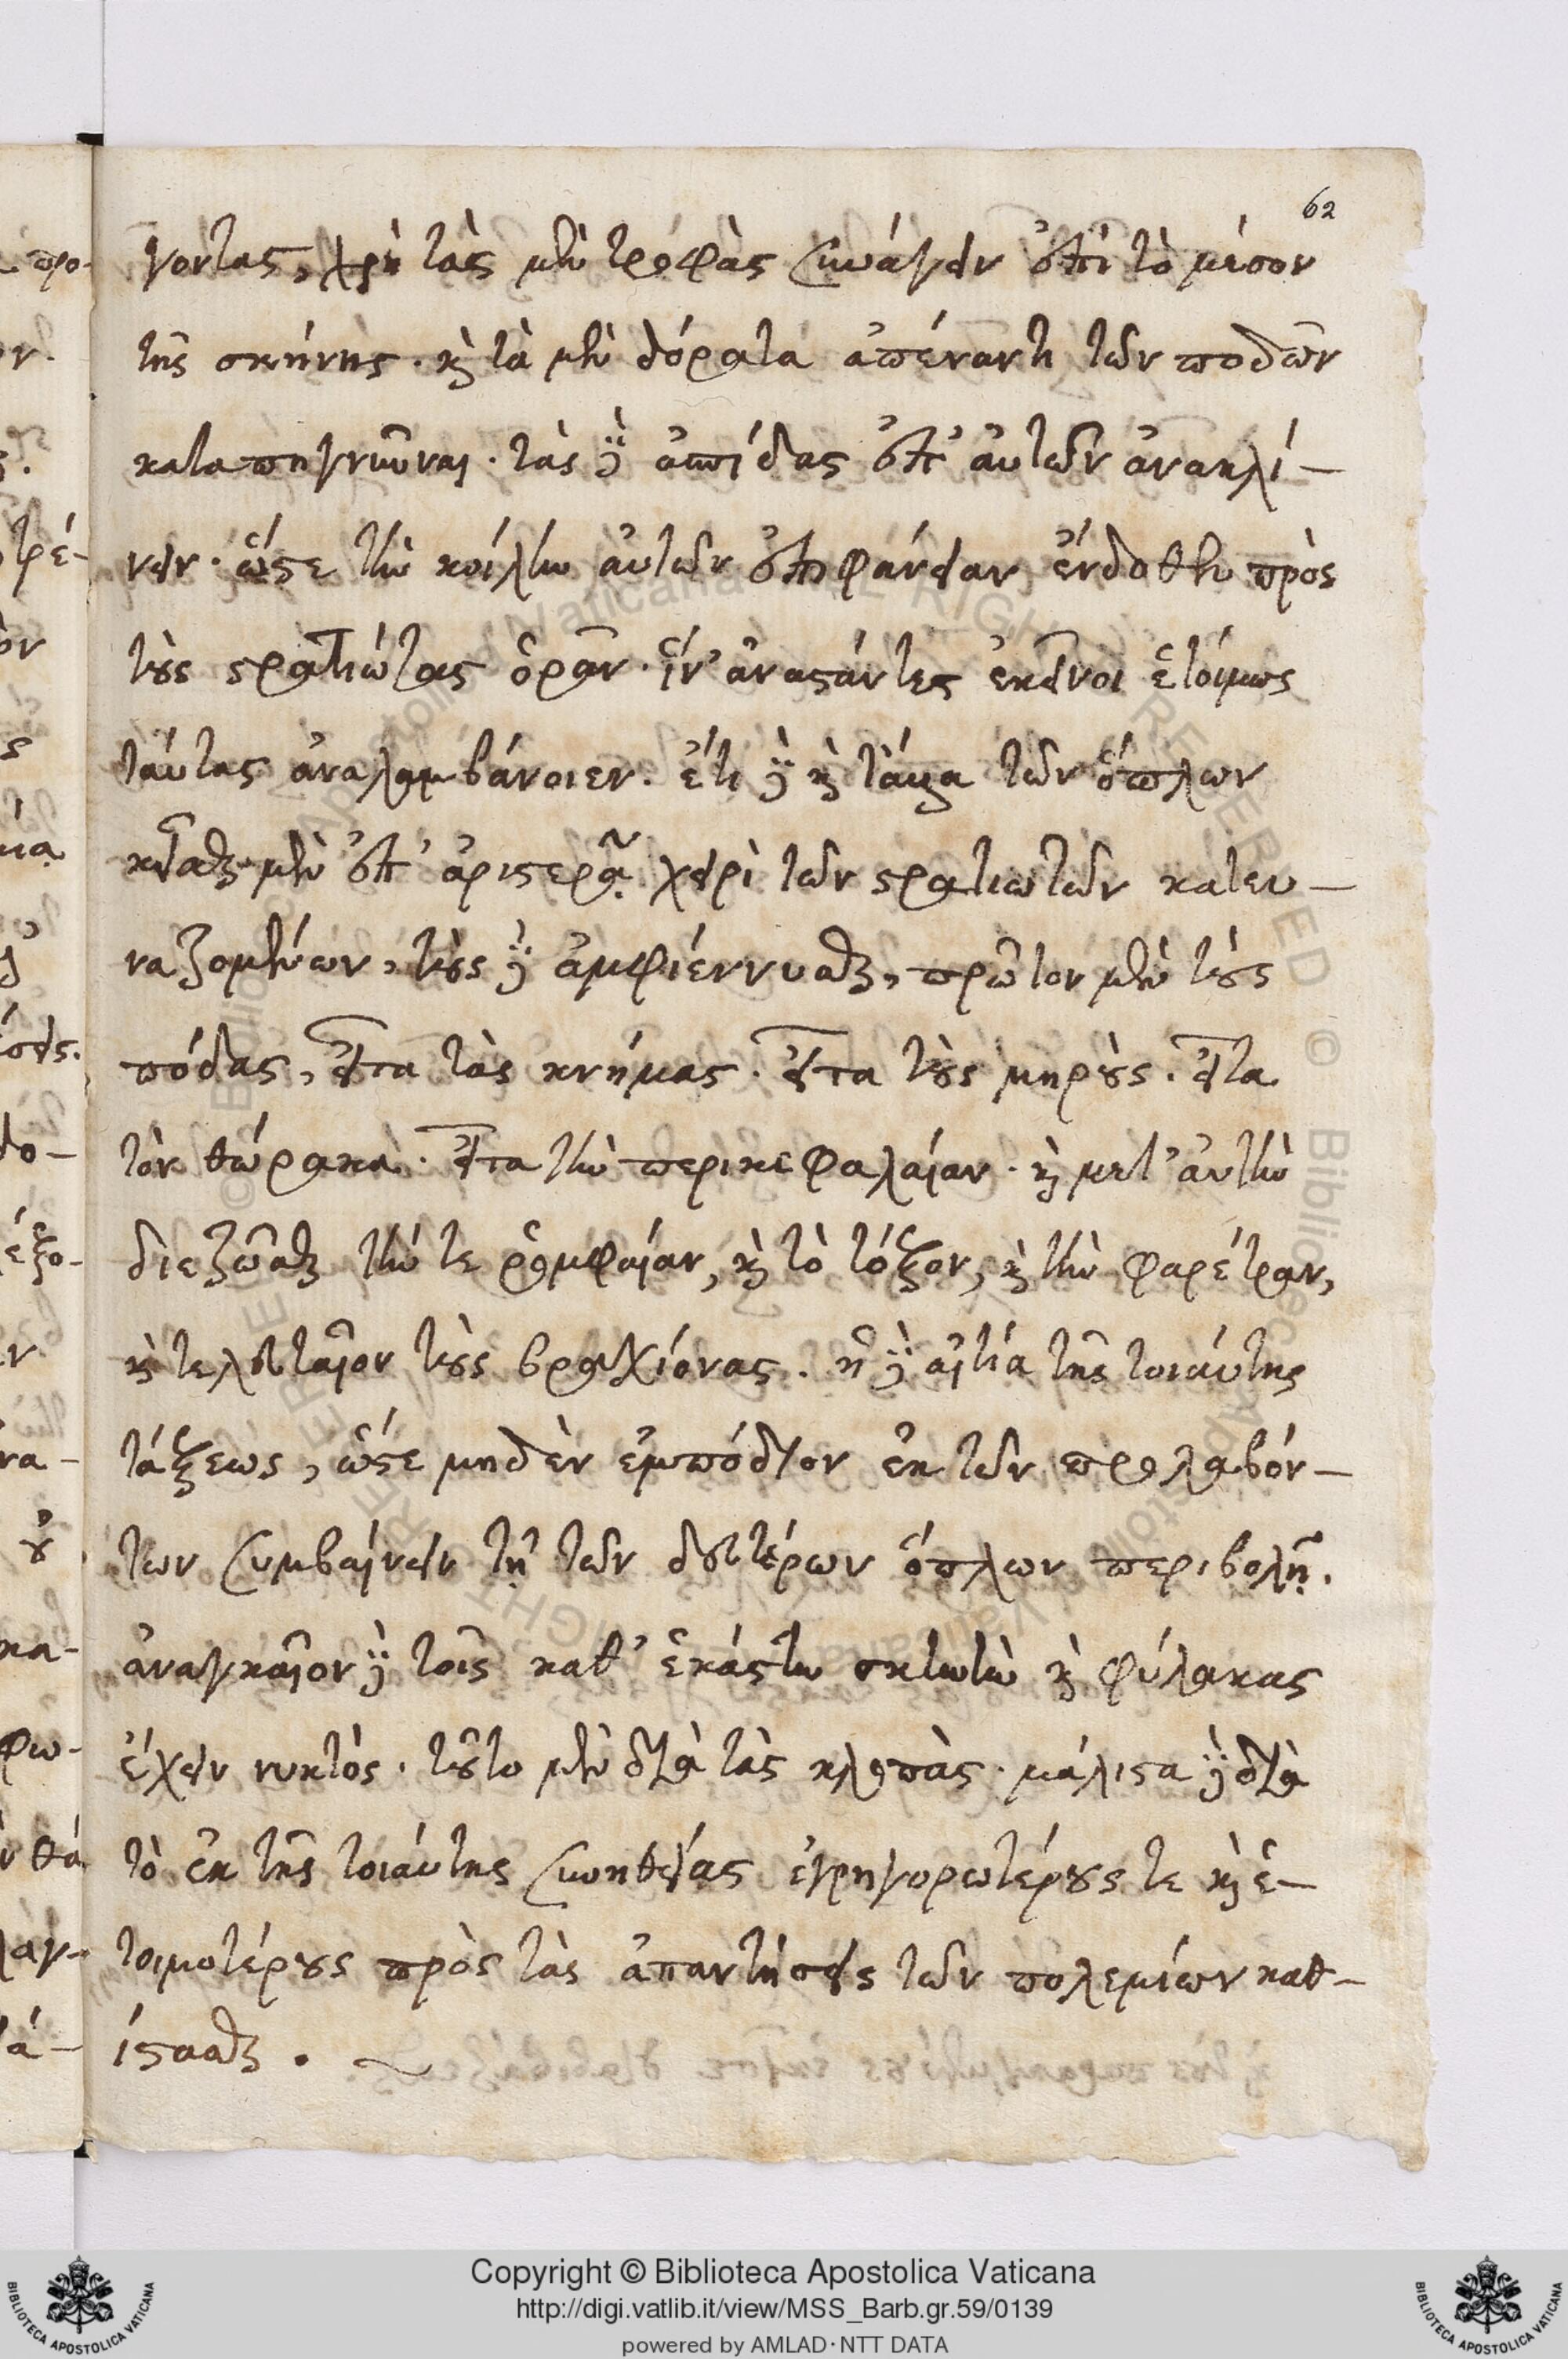 62
γοντας, χρὴ τὰς μὲν τροφὰς συνάγειν ἐπὶ τὸ μέσον
τῆς σκήνης. καὶ τὰ μὲν δόρατα ἀπέναντι τῶν ποδῶν
καταπηγνῦναι. τὰς δὲ ἀσπίδας ἐπ' αὐτῶν ἀνακλί-
νειν. ὥστε τὴν κοίλην αὐτῶν ἐπιφάνειαν ἔνδοθεν πρὸς
τοὺς στρατιώτας ὁρᾶν. ἵν' ἀναστάντες ἐκεῖνοι ἑτοίμως
ταύτας ἀναλαμβάνοιεν. ἔτι δὲ καὶ τἄλλα τῶν ὅπλων
κεῖσθαι μὲν ἐπ' ἀριστερᾷ χειρὶ τῶν στρατιωτῶν κατευ-
ναζομένων, τοὺς δὲ ἀμφιέννυσθαι, πρῶτον μὲν τοὺς
πόδας, εἶτα τὰς κνήμας. εἶτα τοὺς μηροὺς. εἶτα
τὸν θώρακα. εἶτα τὴν περικεφαλαίαν. καὶ μετ' αὐτὴν
διεζῶσθαι τήν τε ῥομφαίαν, καὶ τὸ τόξον, καὶ τὴν φαρέτραν,
καὶ τελευταῖον τοὺς βραχίονας. ἡ δὲ αἰτία τῆς τοιαύτης
τάξεως, ὥστε μηδὲν ἐμπόδιον ἐκ τῶν προλαβόν-
των συμβαίνειν τῇ τῶν δευτέρων ὅπλων περιβολῇ.
ἀναγκαῖον δὲ τοῖς καθ' ἑκάστην σκηνὴν καὶ φύλακας
ἔχειν νυκτός. τοῦτο μὲν διὰ τὰς κλοπὰς. μάλιστα δὲ διὰ
τὸ ἐκ τῆς τοιαύτης συνηθείας ἐγρηγορωτέρους τε καὶ ἑ-
τοιμοτέρους πρὸς τὰς ἀπαντήσεις τῶν πολεμίων καθ-
ίστασθαι.
Copyright © Biblioteca Apostolica Vaticana
http://digi.vatlib.it/view/MSS_Barb.gr.59/0139
powered by AMLAD·NTT DATA
BIBLIOTECA APOSTOLICA VATICANA
BIBLIOTECA APOSTOLICA VATICANA